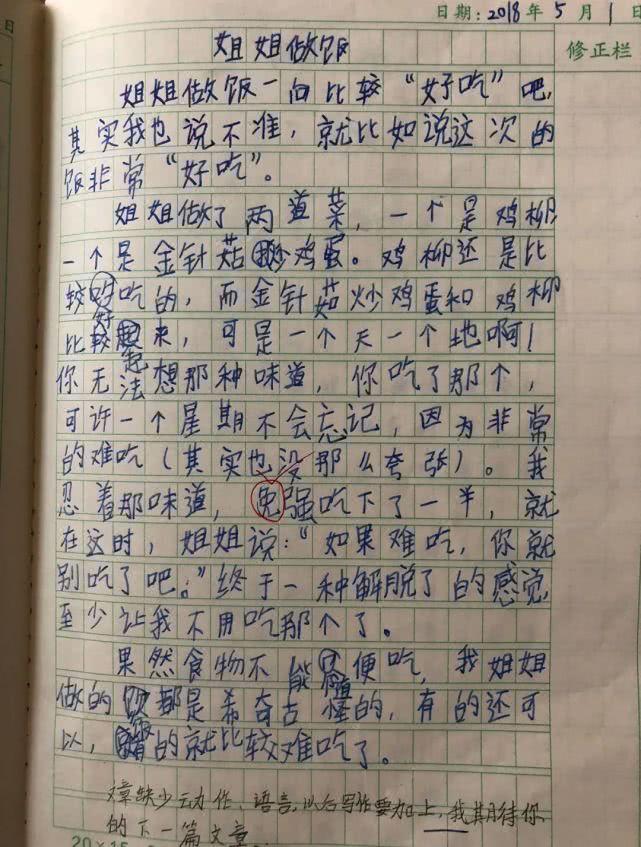 日
日期：2018年5月1日
姐姐做饭
修正栏
姐姐做饭一向比较“好吃”吧，
其实我也说不准，就比如说这次的
饭非常“好吃”。
姐姐做了两道菜，一个是鸡柳
一个是金针菇炒鸡蛋。鸡柳还是比
较好吃的，而金针菇炒鸡蛋和鸡柳
比较起来，可是一个天一个地啊！
你无法想那种味道，你吃了那个，
可许一个星期不会忘记，因为非常
的难吃（其实也没那么夸张）。我
忍着那味道，免强吃下了一半，就
在这时，姐姐说：“如果难吃，你就
别吃了吧。”终于一种解脱了的感觉
至少让我不用吃那个了。
果然食物不能随便吃，我姐姐
做的饭都是希奇古怪的，有的还可
以，有的就比较难吃了。
文章缺少动作、语言，以后写作要加上，我期待你
的下一篇文章。
20×15